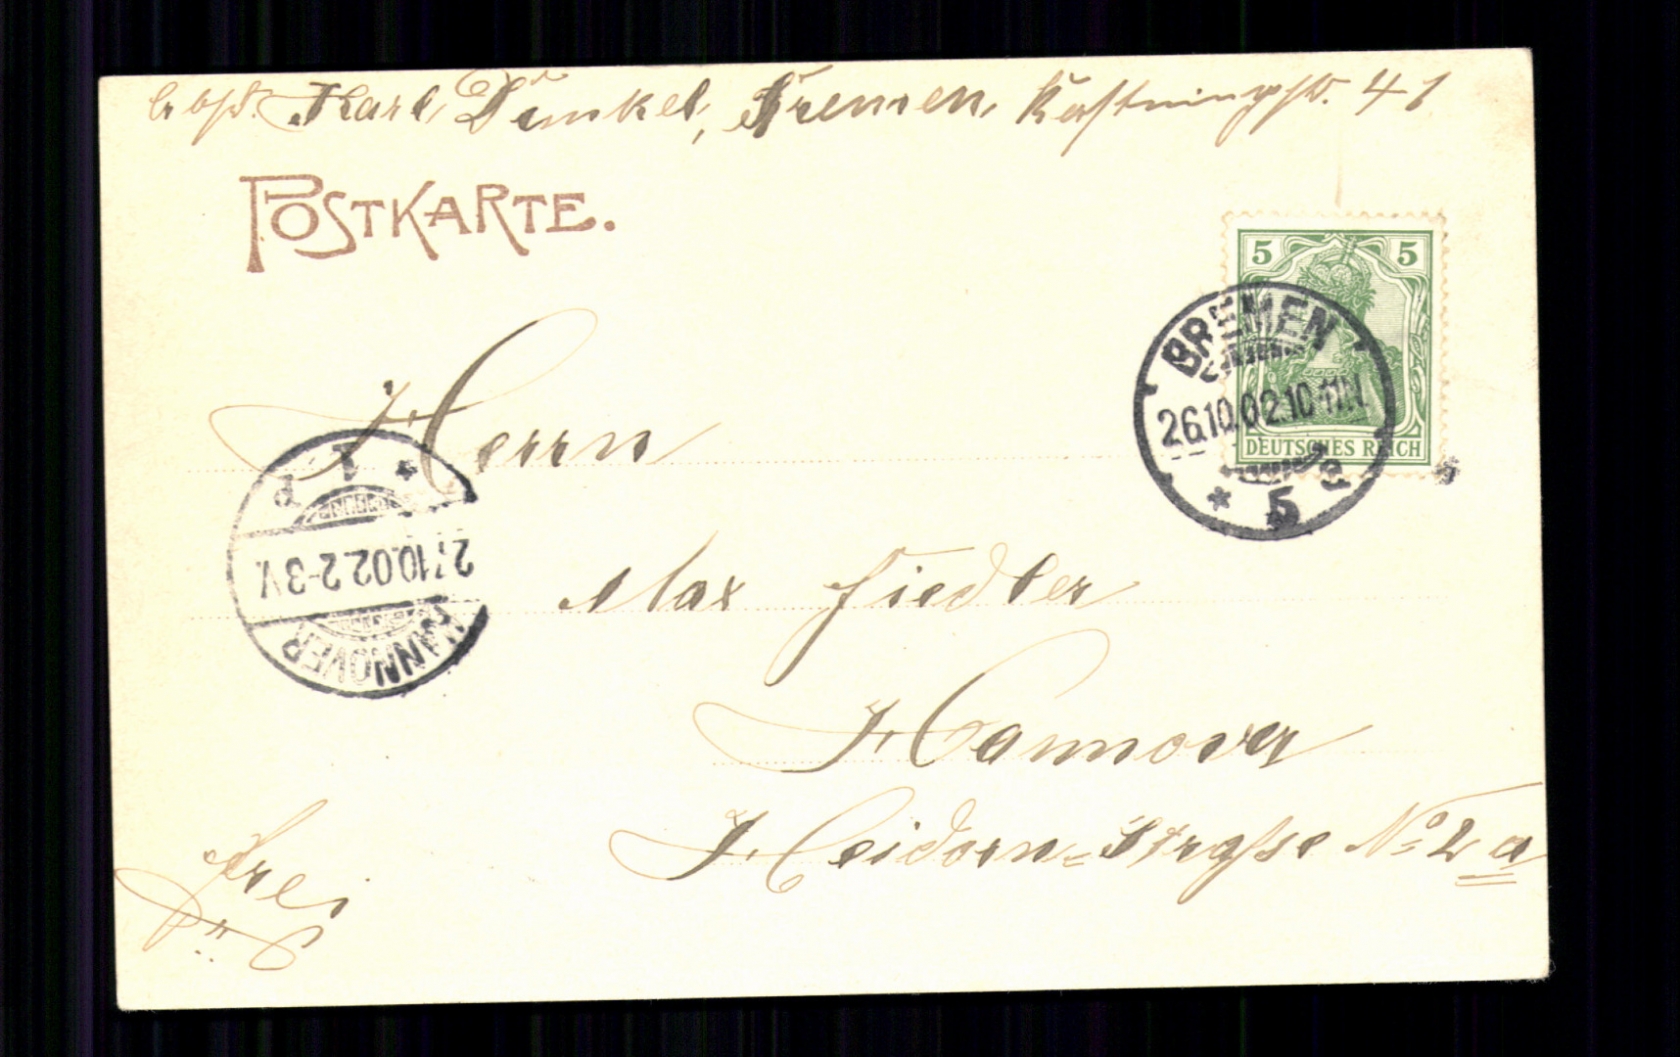 Abs. Karl Dunkel, Bremen, 41
POSTKARTE.
5 5
DEUTSCHES REICH
BREMEN
26.10.02.10-11N.
* 5 d
Herrn
HANNOVER
27.10.02.2-3V.
* 1 d
Max Fiedler
Hannover
Heidorn=Strasse No 2 a
frei